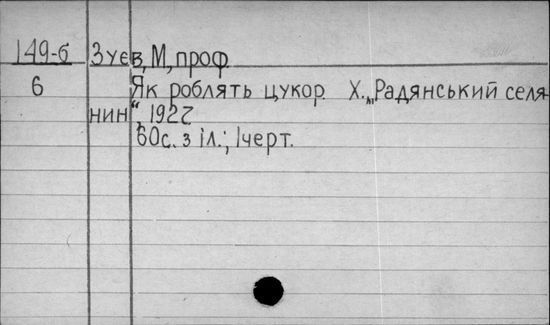 149-б Зуєв, М, проф.
6 Як роблять цукор. Х. „Радянський селя-
нин“, 1927
60с. з іл.; 1черт.